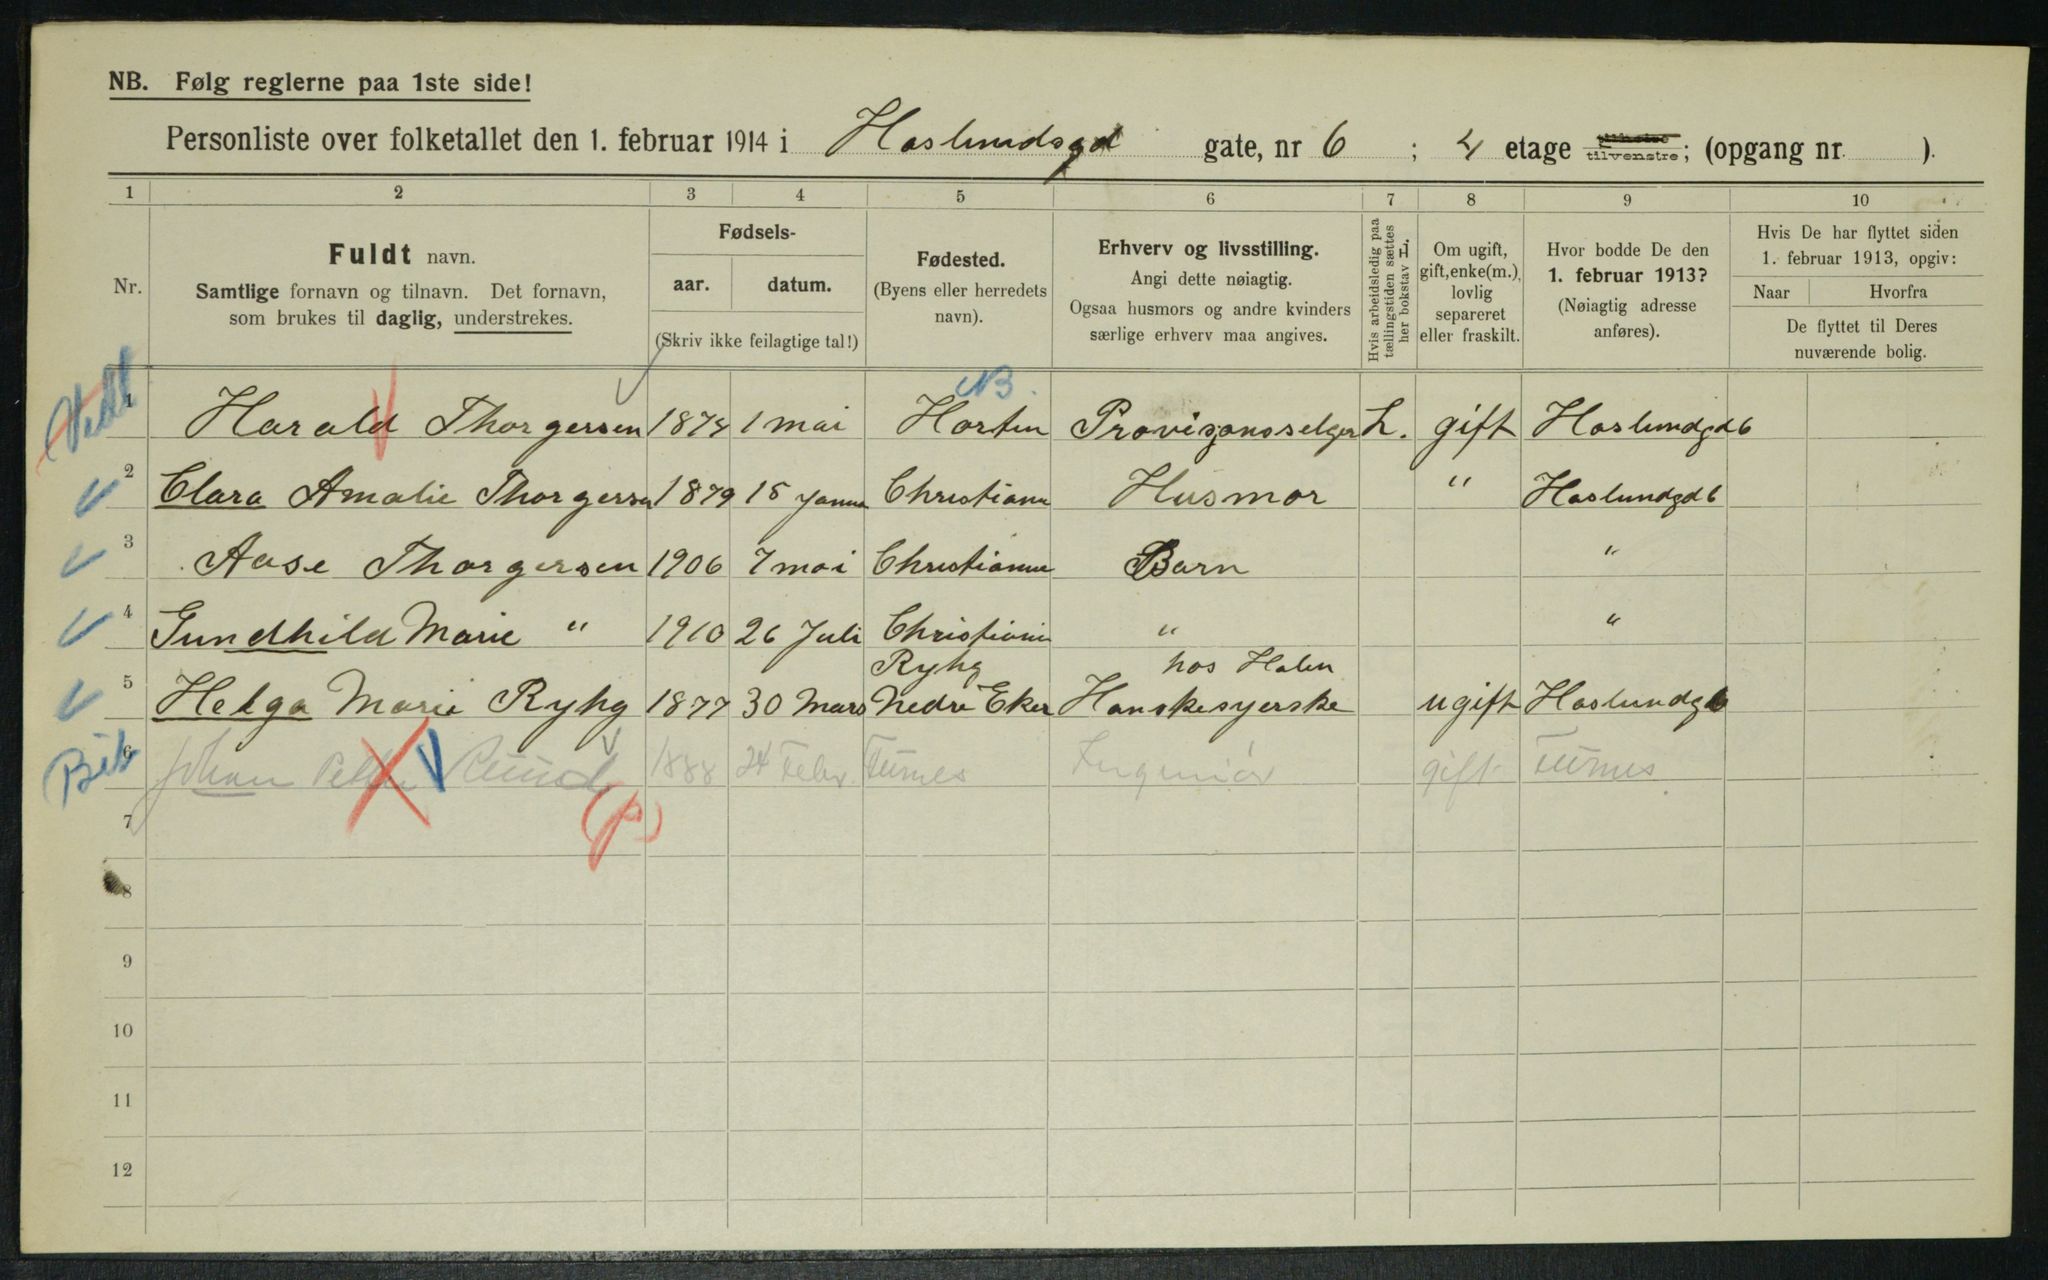 NB. Følg reglerne paa 1ste side!
Personliste over folketallet den 1. februar 1914 i Haslundsgd gate, nr 6 ; 4 etage tilhøire tilvenstre; (opgang nr. ).
1 2 3 4 5 6 7 8 9 10
Nr.
Fuldt navn.
Samtlige fornavn og tilnavn. Det fornavn,
som brukes til daglig, understrekes.
Fødsels-
aar. datum.
(Skriv ikke feilagtige tal!)
Fødested.
(Byens eller herredets
navn).
Erhverv og livsstilling.
Angi dette nøiagtig.
Ogsaa husmors og andre kvinders
særlige erhverv maa angives.
Hvis arbeidsledig paa
tællingstiden sættes
her bokstav L.
Om ugift,
gift, enke(m.),
lovlig
separeret
eller fraskilt.
Hvor bodde De den
1. februar 1913?
(Nøiagtig adresse
anføres).
Hvis De har flyttet siden
1. februar 1913, opgiv:
Naar Hvorfra
De flyttet til Deres
nuværende bolig.
NB.
1 Harald Thorgersen 1874 1 mai Horten Provisjonsselger L. gift Haslundgd 6
2 Clara Amalie Thorgersen 1879 15 Janua Christiania Husmor " Haslundgd 6
3 Aase Thorgersen 1906 7 mai Christiania Barn "
4 Gundhild Marie " 1910 26 Juli Christiania " "
Ryhg hos Halen
5 Helga Marie Ryhg 1877 30 Mars Nedre Eker Hanskesyerske ugift Haslundgd 6
Bib
6 Johan Ruud 1888 24 Febr. Furnes Ingeniör gift Furnes
(p)
7
8
9
10
11
12